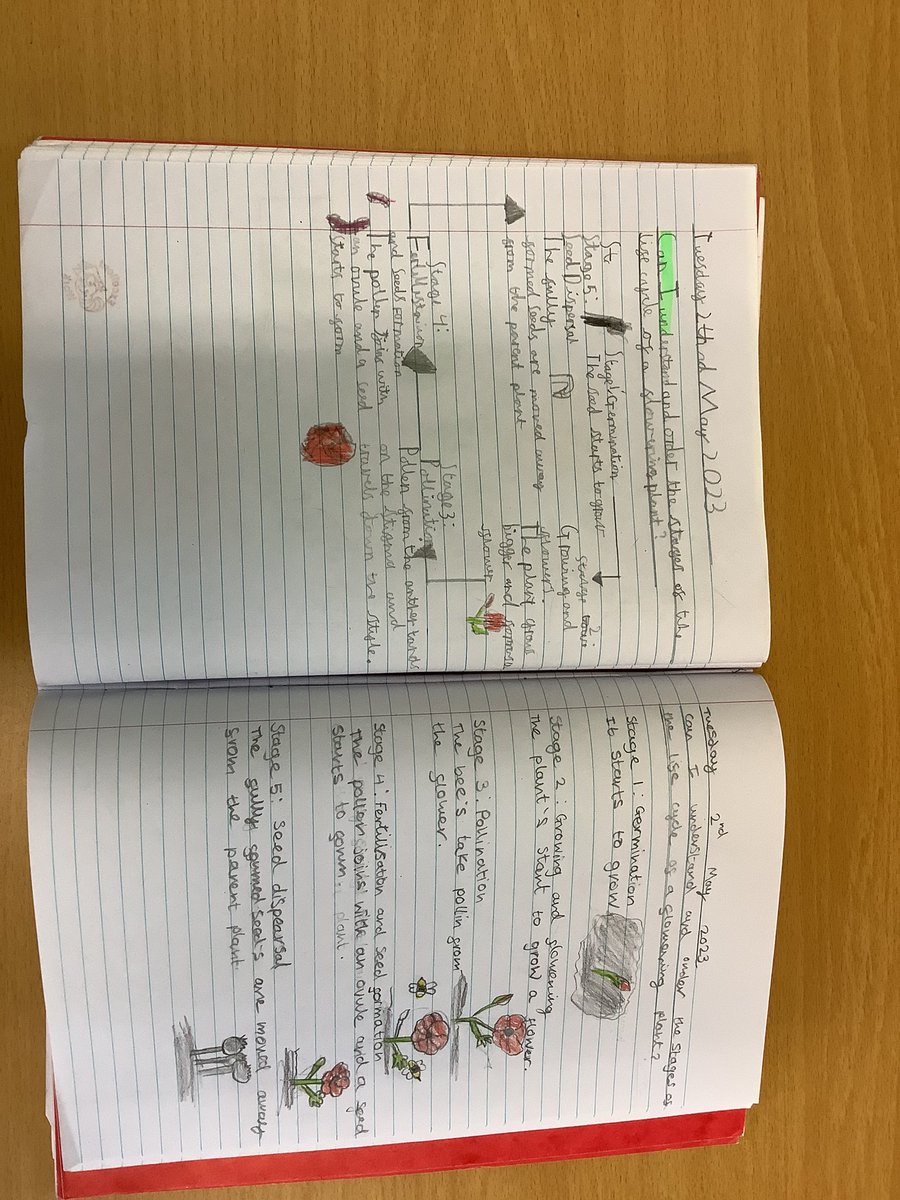 Tuesday 2thnd May 2023
Can I understand and order the stages of the
life cycle of a flowering plant?
St
Stage1:Germination
The seed starts to grow
Stage 2:
Growing and
flowers.
The plant grows
bigger and
flower
Stage3:
Pollination
Pollen from the anther lands
on the stigma and
travels down the style.
Stage 4:
and seeds formation
The pollen joins with
an ovule and a seed
starts to form
Stage 5:
Seed Dispersal
The fully
formed seeds are moved away
from the parent plant
Tuesday 2nd May 2023
can I understand and order the stages of
the life cycle of a flowering plant?
Stage 1: Germination
It starts to grow
Stage 2: Growing and flowering
The plant's start to grow a flower.
Stage 3: Pollination
The bee's take pollin from
the flower.
Stage 4: Fertilisation and seed formation
The pollen joins with an ovule and a seed
starts to form. plant.
Stage 5: Seed dispearsal
The fully formed seed's are moved away
from the parent plant